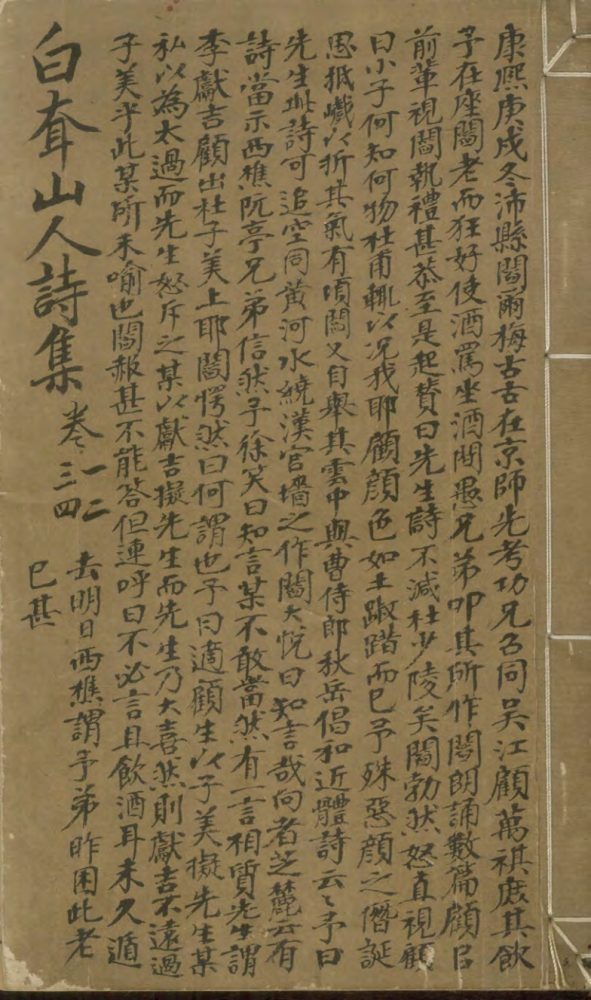 康熙庚戌冬沛縣閻爾梅古古在京師先考功兄召同吳江顧萬祺庶其飲
予在座閻老而狂好使酒罵坐酒間愚兄弟叩其所作閻朗誦數篇顧居
前輩視閻執禮甚恭至是起贊曰先生詩不減杜少陵矣閻勃然怒直視顧
曰小子何知何物杜甫輒以況我耶顧顏色如土踧踖而已予殊惡顏之僭誕
思抵巇以折其氣有頃閻又自舉其雲中與曹侍郎秋岳倡和近體詩云々予曰
先生此詩可追空同黃河水繞漢官墻之作閻大悅曰知言哉向者芝麓云有
詩當示西樵阮亭兄弟信然予徐笑曰知言某不敢當然有一言相質先生謂
李獻吉顧出杜子美上耶閻愕然曰何謂也予曰適顧生以子美擬先生某
私以為太過而先生怒斥之某以獻吉擬先生而先生乃大喜然則獻吉不遠過
子美乎此某所未喻也閻赧甚不能答但連呼曰不必言且飲酒耳未久遁
去明日西樵謂予弟昨困此老
已甚
白耷山人詩集
卷一二
三四